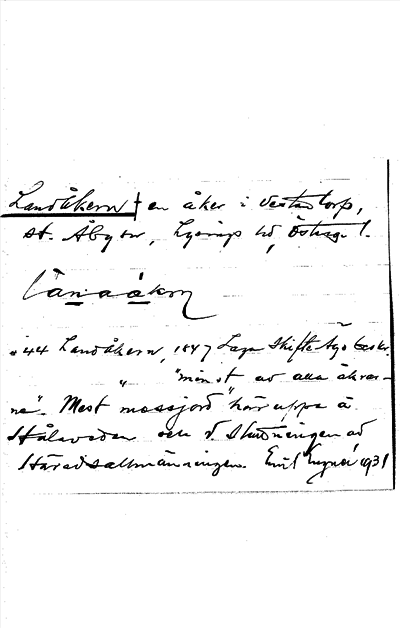 Landåkern † en åker i Västantorp,
st. Åby sn, Lysings hd, Östergötl.
lànaákọn
№ 44 Landåkern, 1847 Laga Skifte Äg. beskr.
" "minst av alla åkrar-
na". Mest mossjord här uppe å
Hålaveden och v. sluttningen av
Häradsallmänningen. Emil Engnér 1931